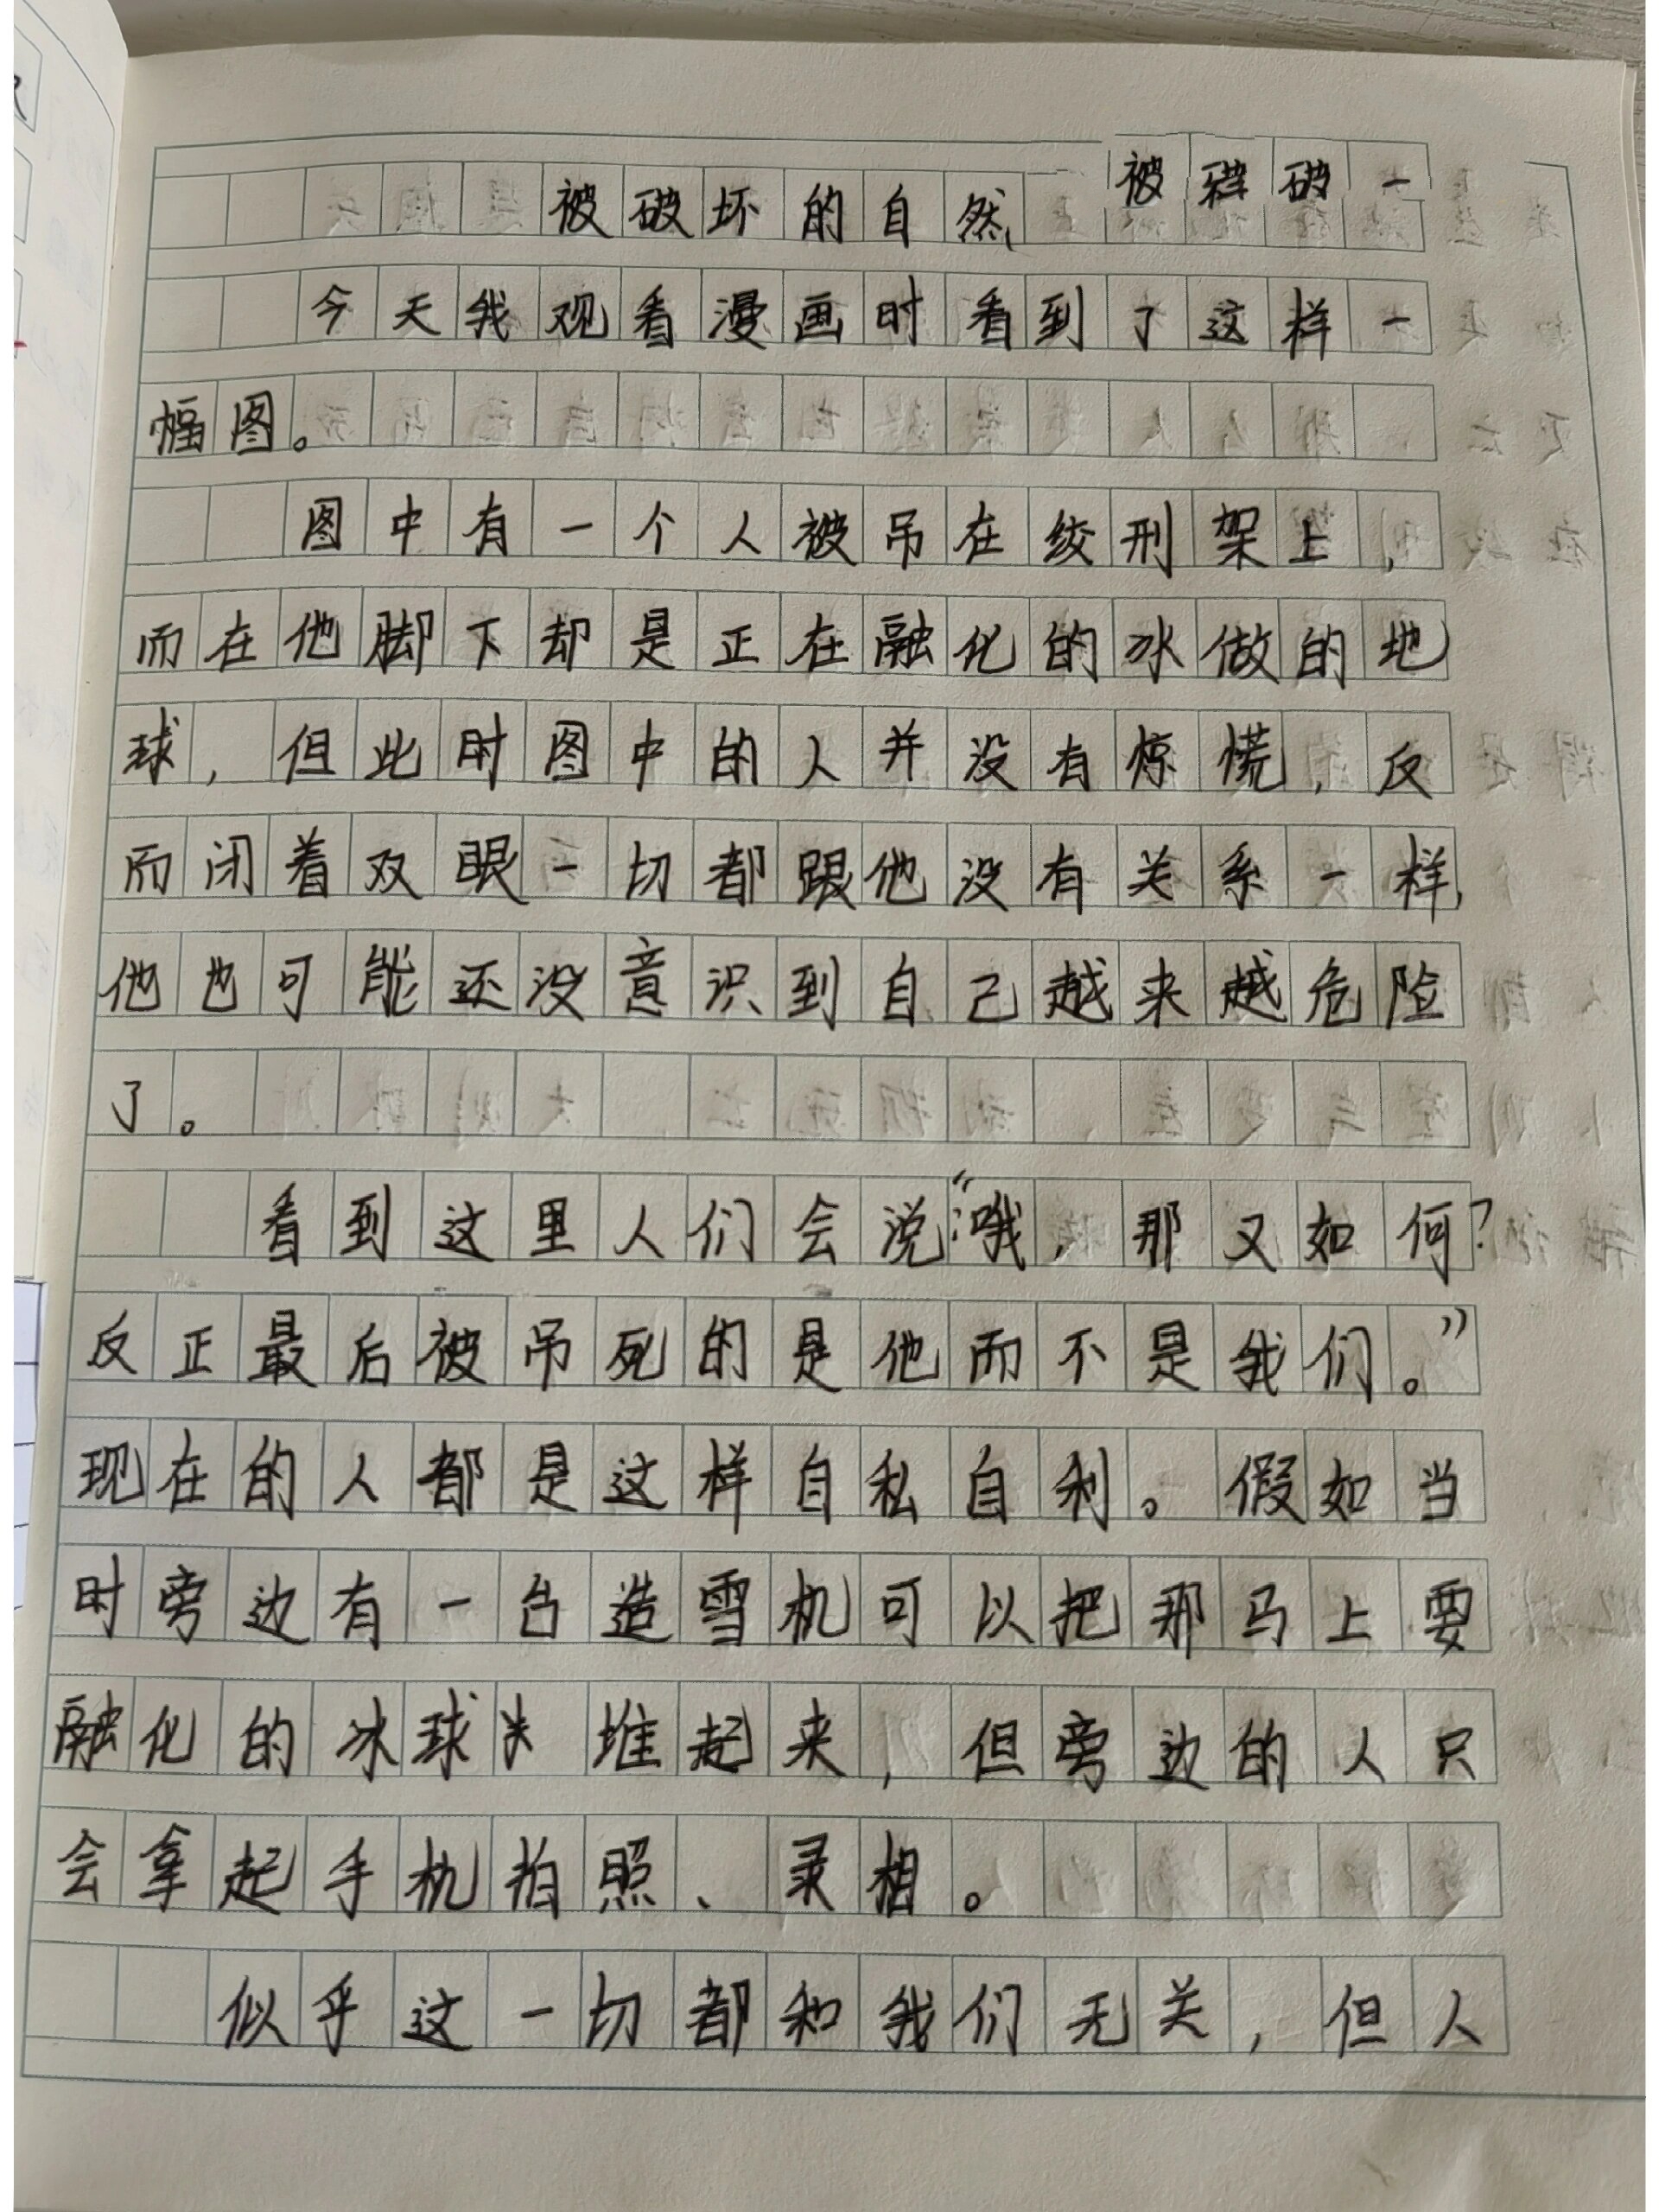 被破坏的自然 被 破 一
今天我观看漫画时看到了这样一
幅图。
图中有一个人被吊在绞刑架上，
而在他脚下却是正在融化的冰做的地
球，但此时图中的人并没有惊慌，反
而闭着双眼一切都跟他没有关系一样，
他也可能还没意识到自己越来越危险
了。
看到这里人们会说：“哦，那又如何？
反正最后被吊死的是他而不是我们。”
现在的人都是这样自私自利。假如当
时旁边有一台造雪机可以把那马上要
融化的冰球堆起来，但旁边的人只
会拿起手机拍照、录相。
似乎这一切都和我们无关，但人